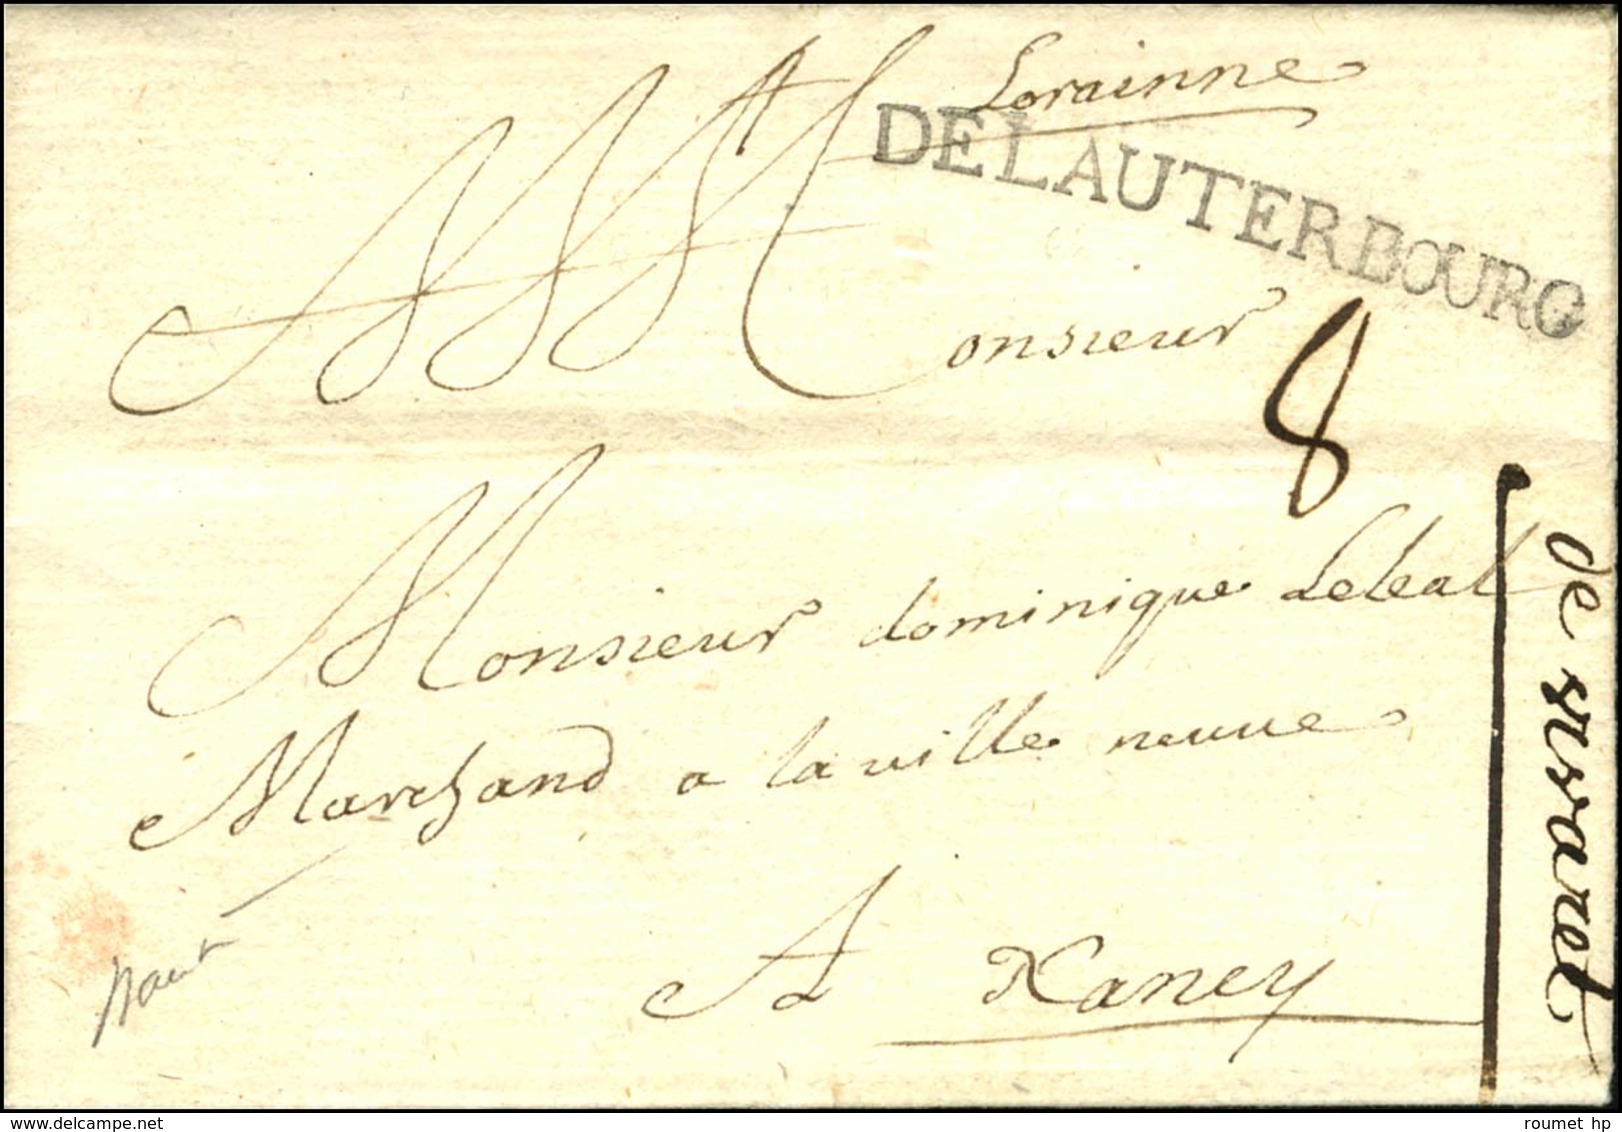 Lorainne
DELAUTERBOURG
Monsieur
8
Monsieur dominique Leleal
Marchand a la ville neuve
A Nancy
de
delcampe.net
roumet hp